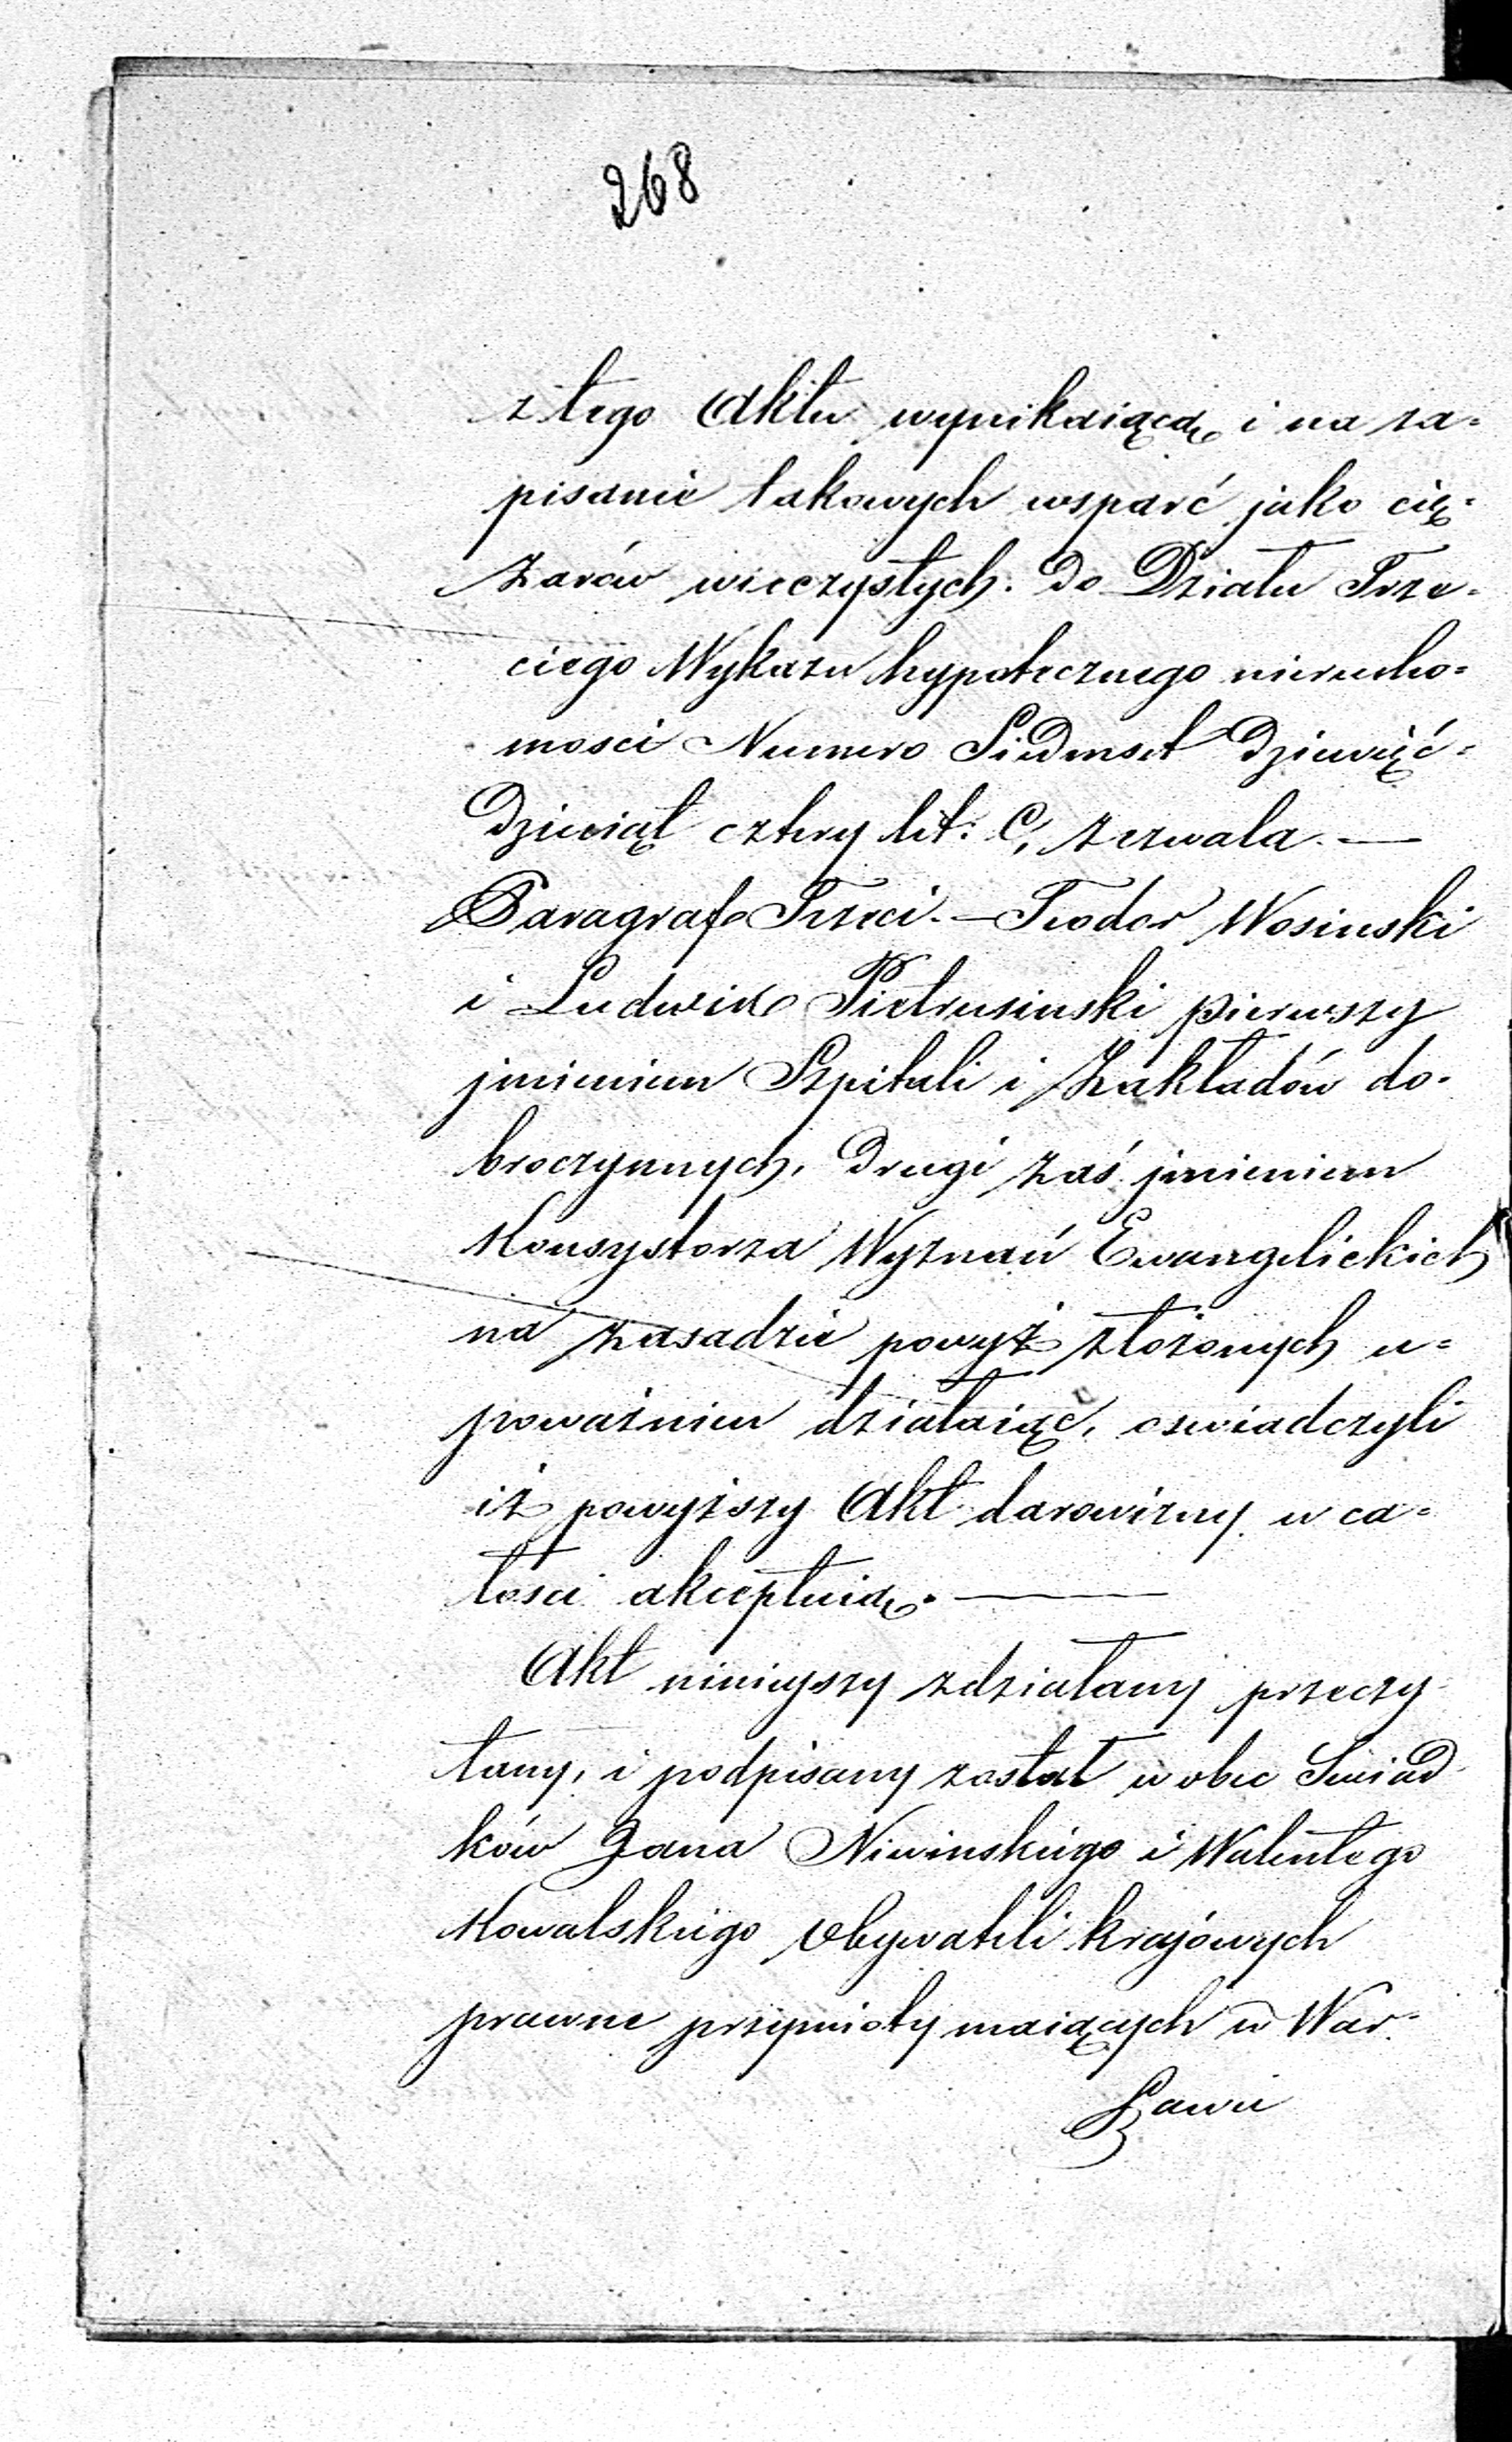 268
z tego Aktu wynikaiącą i na za=
pisanie takowych wsparć jako cię=
żarów wieczystych. do Działu Trze=
ciego Wykazu hypotecznego nierucho=
mosci Numero Siedmset dziewięć=
dziesiąt cztery lit: C, zezwala. —
Paragraf Trzeci. — Teodor Wosinski
i Ludwik Pietrusinski pierwszy
jmieniem Szpitali i Zakładów do=
broczynnych, drugi zaś jmieniem
Konsystorza Wyznań Ewangelickich
na zasadzie powyż złożonych u=
poważnien działaiąc, oswiadczyli
iż powyższy Akt darowizny w ca=
łosci akceptuią. —
Akt ninieyszy zdziałany przeczy
tany, i podpisany został w obec Swiad
ków Jana Niwinskiego i Walentego
Kowalskiego Obywateli krajowych
prawne przymioty maiących w War=
szawie